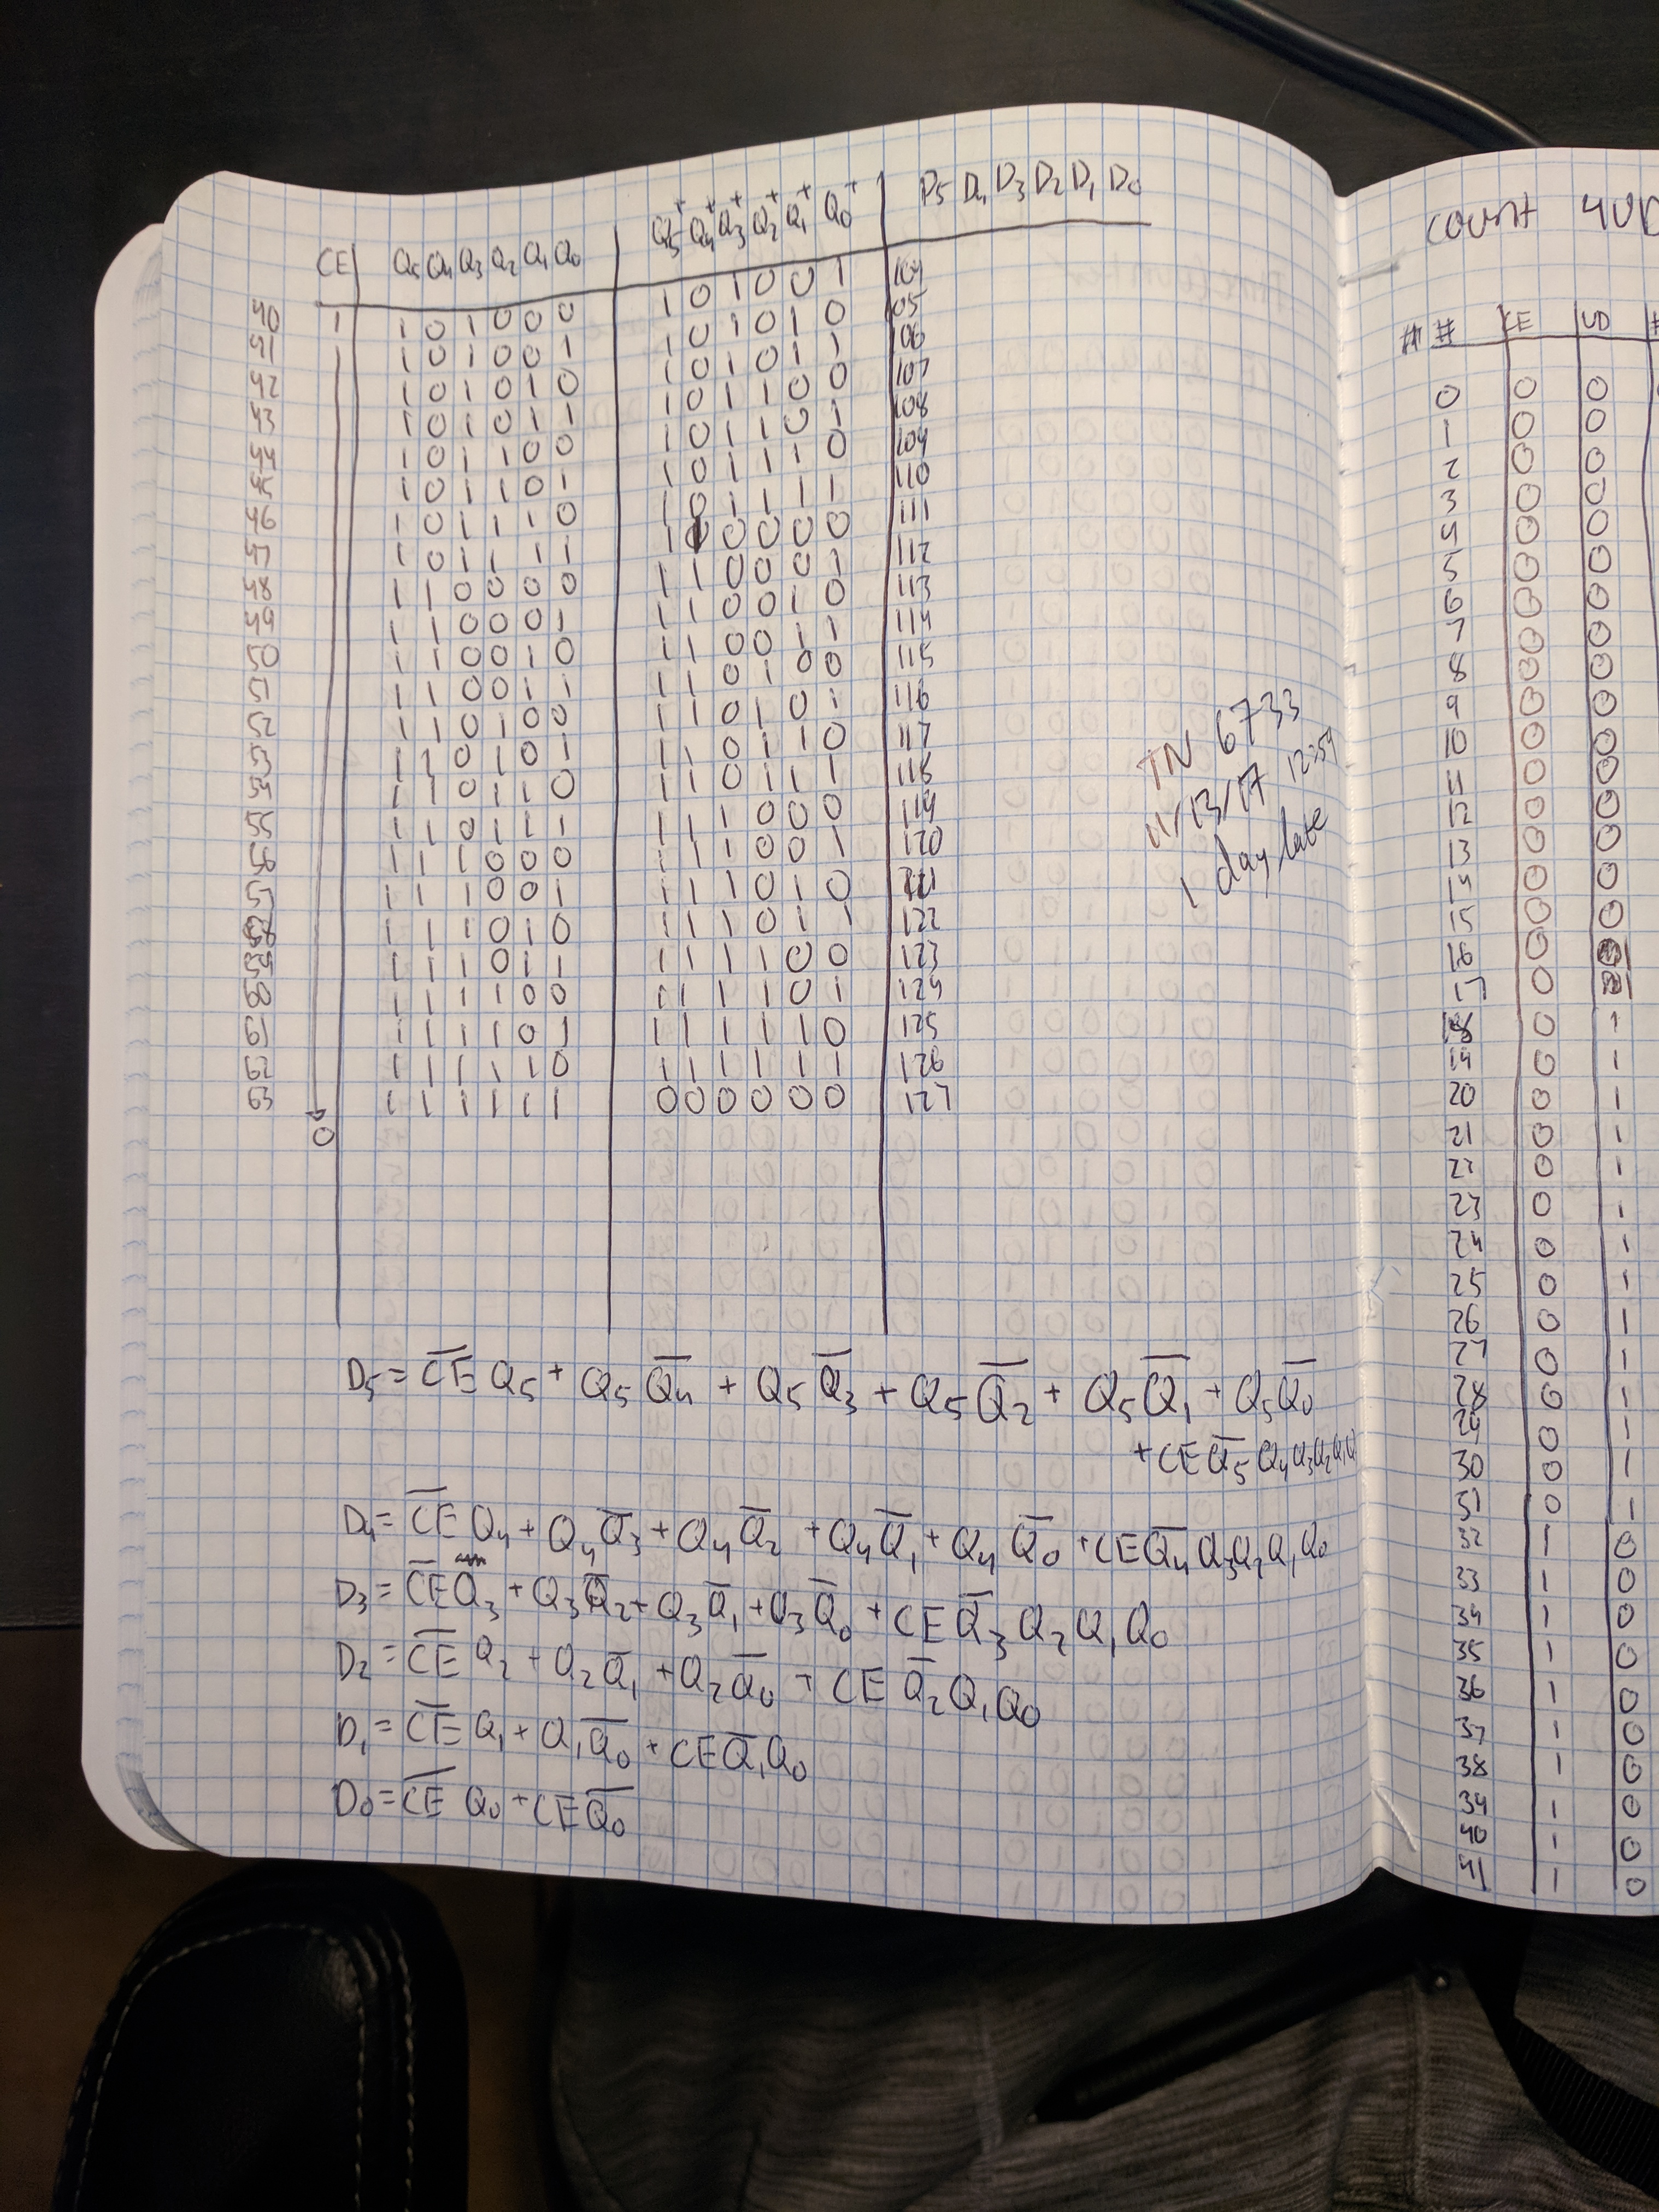 CE Q5 Q4 Q3 Q2 Q1 Q0 Q5+ Q4+ Q3+ Q2+ Q1+ Q0+ D5 D4 D3 D2 D1 D0
40 1 1 0 1 0 0 0 1 0 1 0 0 1 104
41 1 0 1 0 0 1 1 0 1 0 1 0 105
42 1 0 1 0 1 0 1 0 1 0 1 1 106
43 1 0 1 0 1 1 1 0 1 1 0 0 107
44 1 0 1 1 0 0 1 0 1 1 0 1 108
45 1 0 1 1 0 1 1 0 1 1 1 0 109
46 1 0 1 1 1 0 1 0 1 1 1 1 110
47 1 0 1 1 1 1 1 1 0 0 0 0 111
48 1 1 0 0 0 0 1 1 0 0 0 1 112
49 1 1 0 0 0 1 1 1 0 0 1 0 113
50 1 1 0 0 1 0 1 1 0 0 1 1 114
51 1 1 0 0 1 1 1 1 0 1 0 0 115
52 1 1 0 1 0 0 1 1 0 1 0 1 116
53 1 1 0 1 0 1 1 1 0 1 1 0 117
54 1 1 0 1 1 0 1 1 0 1 1 1 118
55 1 1 0 1 1 1 1 1 1 0 0 0 119
56 1 1 1 0 0 0 1 1 1 0 0 1 120
57 1 1 1 0 0 1 1 1 1 0 1 0 121
58 1 1 1 0 1 0 1 1 1 0 1 1 122
59 1 1 1 0 1 1 1 1 1 1 0 0 123
60 1 1 1 1 0 0 1 1 1 1 0 1 124
61 1 1 1 1 0 1 1 1 1 1 1 0 125
62 1 1 1 1 1 0 1 1 1 1 1 1 126
63 1 1 1 1 1 1 0 0 0 0 0 0 127
0
TN 6733
11/13/17 12:54
1 day late
D5 = C̅E̅ Q5 + Q5 Q̅4 + Q5 Q̅3 + Q5 Q̅2 + Q5 Q̅1 + Q5 Q̅0
+ CE Q̅5 Q4 Q3 Q2 Q1 Q0
D4 = C̅E̅ Q4 + Q4 Q̅3 + Q4 Q̅2 + Q4 Q̅1 + Q4 Q̅0 + CE Q̅4 Q3 Q2 Q1 Q0
D3 = C̅E̅ Q3 + Q3 Q̅2 + Q3 Q̅1 + Q3 Q̅0 + CE Q̅3 Q2 Q1 Q0
D2 = C̅E̅ Q2 + Q2 Q̅1 + Q2 Q̅0 + CE Q̅2 Q1 Q0
D1 = C̅E̅ Q1 + Q1 Q̅0 + CE Q̅1 Q0
D0 = C̅E̅ Q0 + CE Q̅0
count 4UD
# CE UD #
0 0 0
1 0 0
2 0 0
3 0 0
4 0 0
5 0 0
6 0 0
7 0 0
8 0 0
9 0 0
10 0 0
11 0 0
12 0 0
13 0 0
14 0 0
15 0 0
16 0
17 0
18 0 1
19 0 1
20 0 1
21 0 1
22 0 1
23 0 1
24 0 1
25 0 1
26 0 1
27 0 1
28 0 1
29 0 1
30 0 1
31 0 1
32 1 0
33 1 0
34 1 0
35 1 0
36 1 0
37 1 0
38 1 0
39 1 0
40 1 0
41 1 0